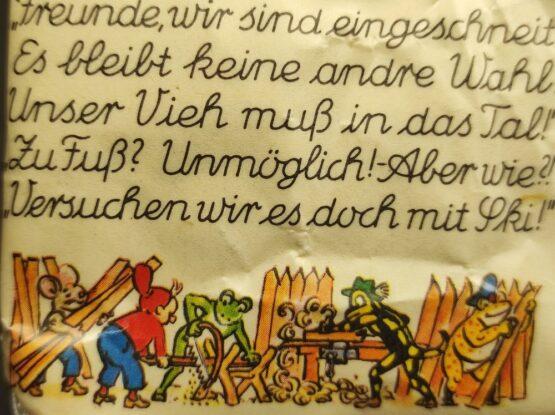 „Freunde, wir sind eingeschneit
Es bleibt keine andre Wahl
Unser Vieh muß in das Tal!"
„Zu Fuß? Unmöglich!-Aber wie?!
„Versuchen wir es doch mit Ski!"